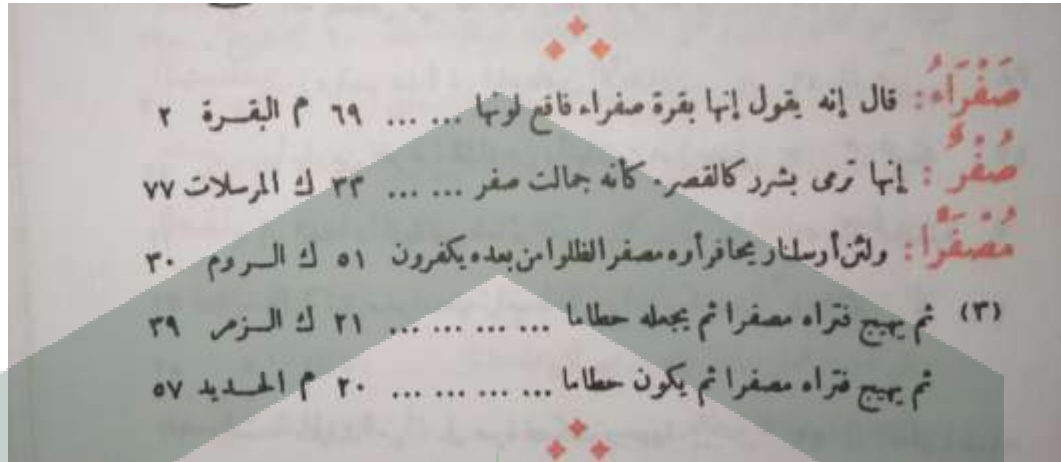 صَفْرَاءُ: قال إنه يقول إنها بقرة صفراء فاقع لونها ... ... ٦٩ م البقـــرة ٢
صُفْرٌ: إنها ترمى بشرر كالقصر. كأنه جمالت صفر ... ... ٣٣ ك المرسلات ٧٧
مُصْفَرًّا: ولئن أرسلنا ريحا فرأوه مصفرا لظلوا من بعده يكفرون ٥١ ك الـــروم ٣٠
(٣) ثم يهيج فتراه مصفرا ثم يجعله حطاما ... ... ... ... ٢١ ك الـــزمر ٣٩
ثم يهيج فتراه مصفرا ثم يكون حطاما ... ... ... ... ٢٠ م الحـــديد ٥٧